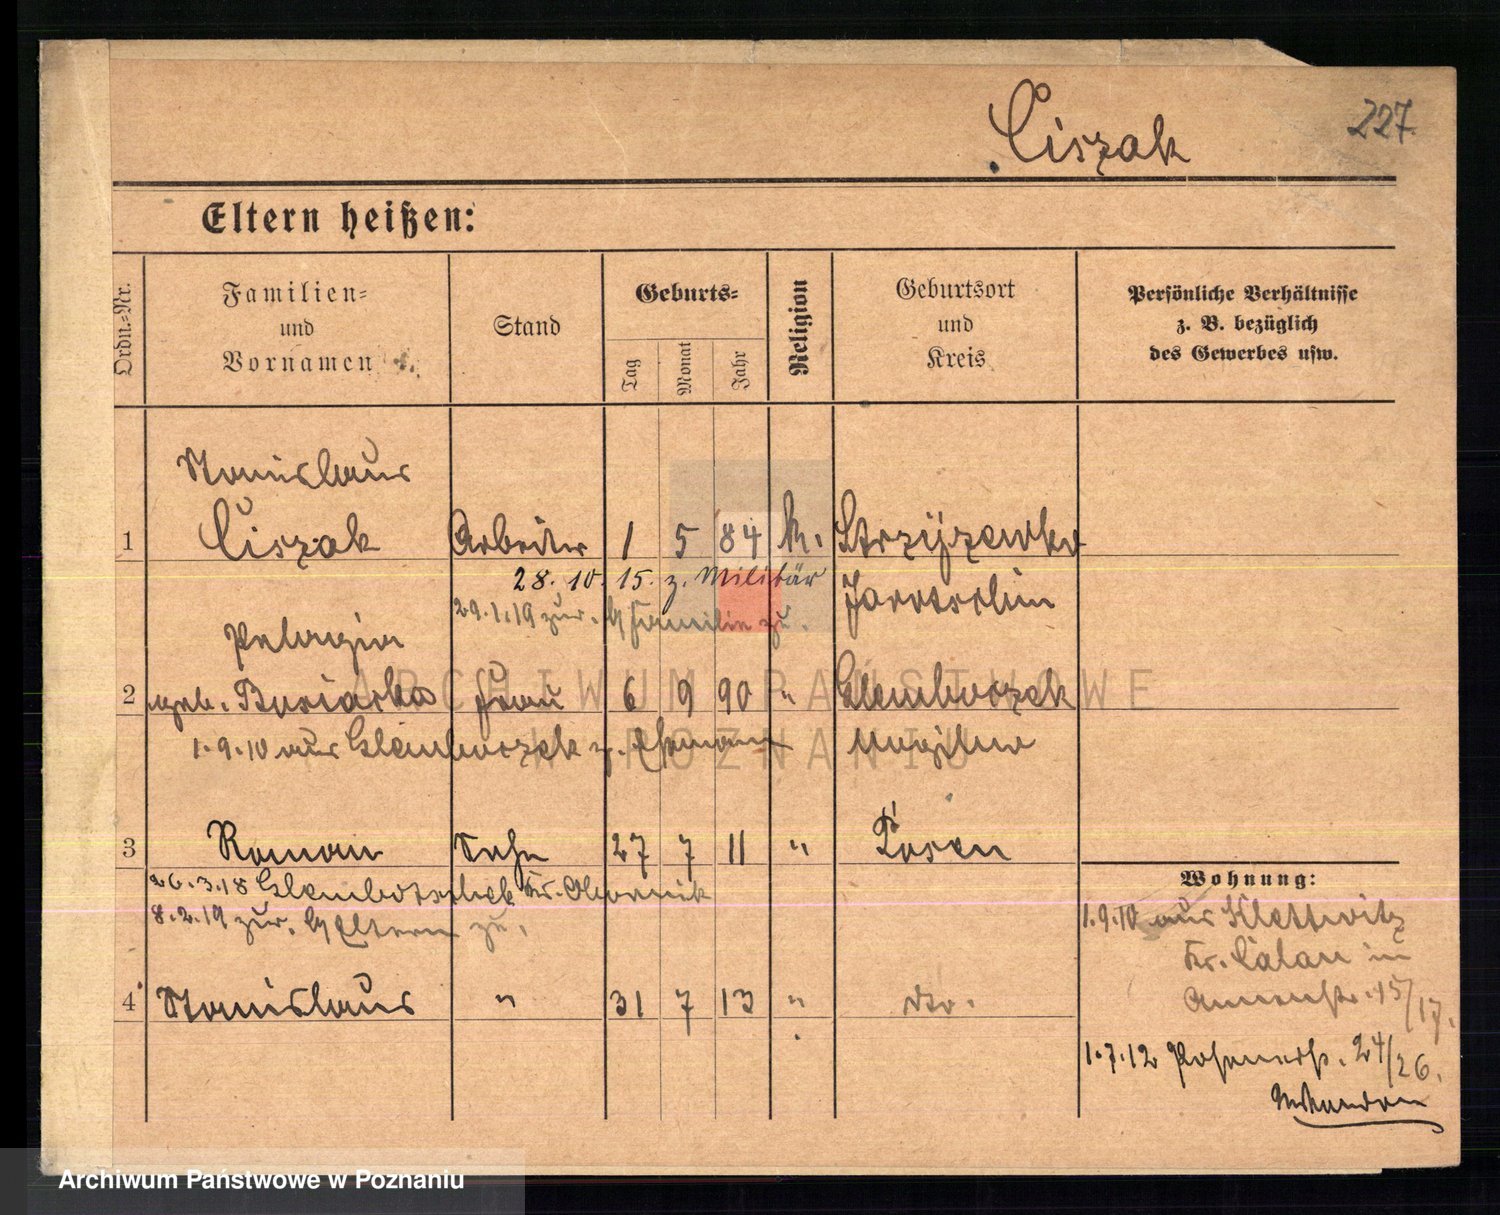 Ciszak
227.
Eltern heißen:
Ordn.=Nr.
Familien=
und
Vornamen
Stand
Geburts=
Tag
Monat
Jahr
Religion
Geburtsort
und
Kreis
Persönliche Verhältnisse
z. B. bezüglich
des Gewerbes usw.
Stanislaus
1 Ciszak Arbeiter 1 5 84 k. Strzyzewko
28. 10. 15. z. Militär Jarotschin
29.1.19 zur. Familie zu.
Pelagia
2 geb. Busiacka Frau 6 9 90 " Glemboczek
1.9.10 aus Glemboczek z. Ehemann
3 Roman Sohn 27 7 11 " Posen
26.3.18 Kr. Obornik
8.2.19 zur. Eltern zu.
4 Stanislaus " 31 7 13 " dto.
Wohnung:
1.9.10 aus Klettwitz
Kr. Calau in
15/17.
1.7.12 Posenerstr. 24/26.
ARCHIWUM PAŃSTWOWE
W POZNANIU
Archiwum Państwowe w Poznaniu